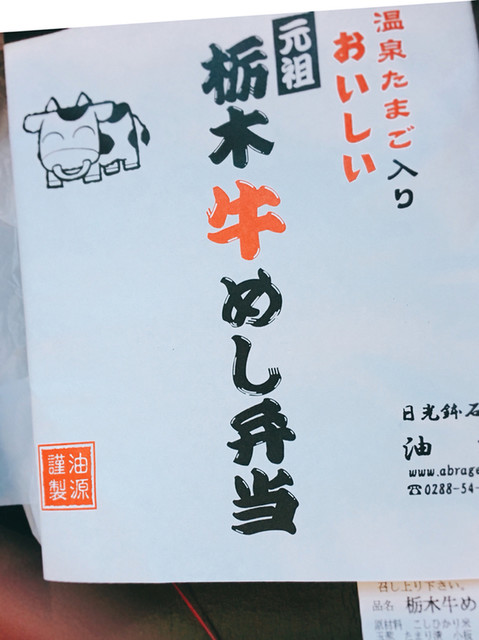 温泉たまご入り
おいしい
元祖
栃木牛めし弁当
日光鉢石
油
www.abrage
☎0288-54-
油源
謹製
召し上り下さい。
品名 栃木牛め
原材料 こしひかり米